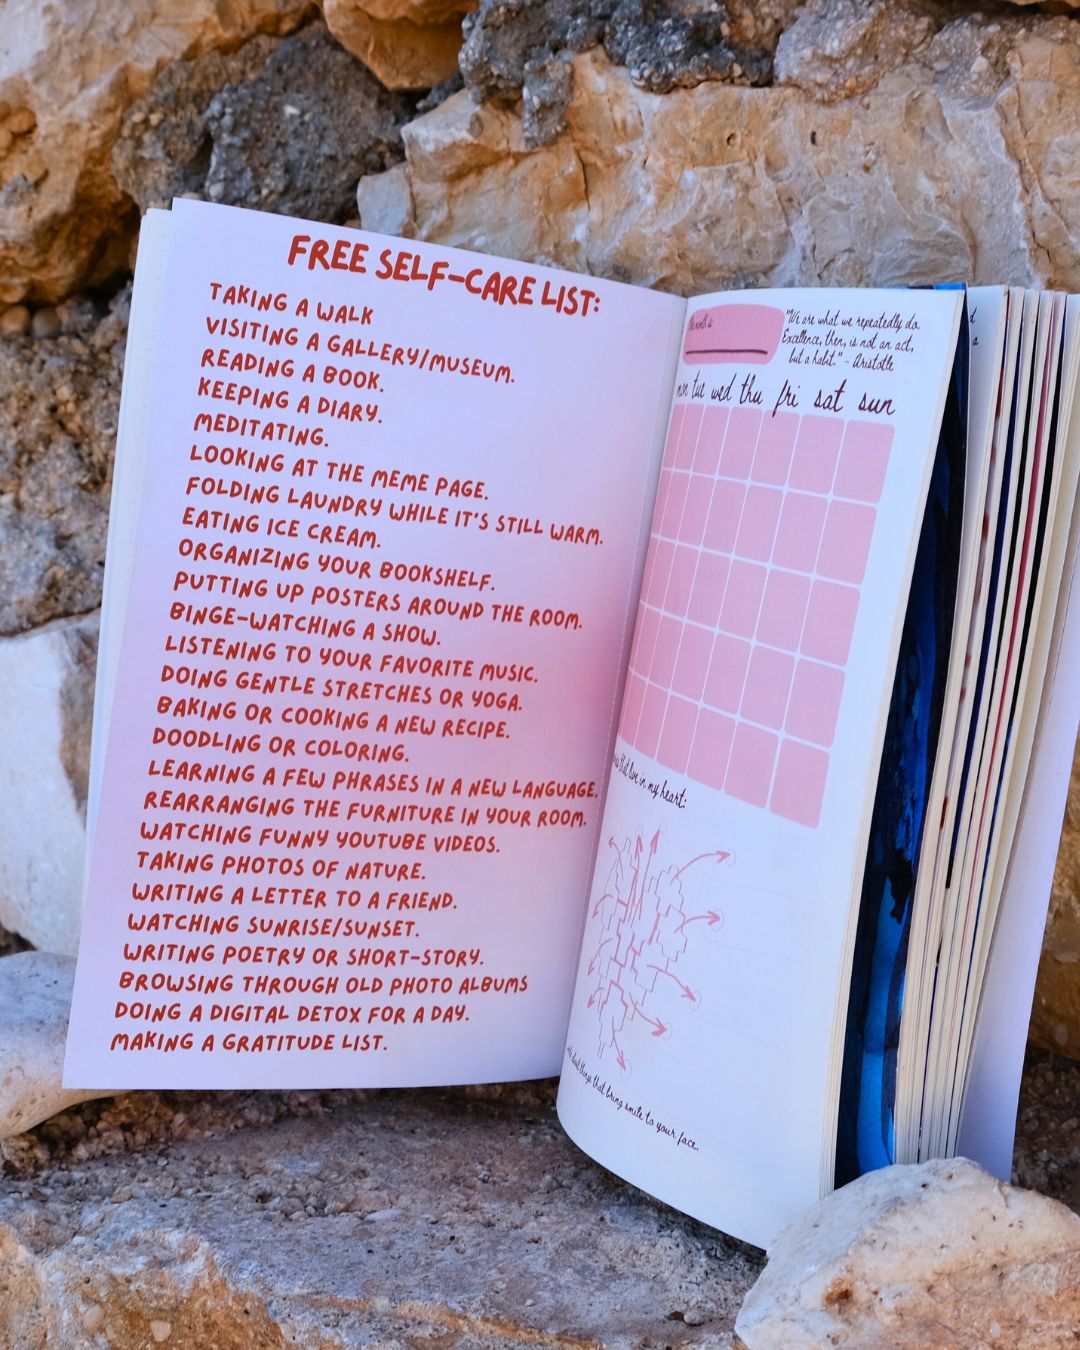 FREE SELF-CARE LIST:
TAKING A WALK
VISITING A GALLERY/MUSEUM.
READING A BOOK.
KEEPING A DIARY.
MEDITATING.
LOOKING AT THE MEME PAGE.
FOLDING LAUNDRY WHILE IT'S STILL WARM.
EATING ICE CREAM.
ORGANIZING YOUR BOOKSHELF.
PUTTING UP POSTERS AROUND THE ROOM.
BINGE-WATCHING A SHOW.
LISTENING TO YOUR FAVORITE MUSIC.
DOING GENTLE STRETCHES OR YOGA.
BAKING OR COOKING A NEW RECIPE.
DOODLING OR COLORING.
LEARNING A FEW PHRASES IN A NEW LANGUAGE.
REARRANGING THE FURNITURE IN YOUR ROOM.
WATCHING FUNNY YOUTUBE VIDEOS.
TAKING PHOTOS OF NATURE.
WRITING A LETTER TO A FRIEND.
WATCHING SUNRISE/SUNSET.
WRITING POETRY OR SHORT-STORY.
BROWSING THROUGH OLD PHOTO ALBUMS
DOING A DIGITAL DETOX FOR A DAY.
MAKING A GRATITUDE LIST.
month is
"We are what we repeatedly do.
Excellence, then, is not an act,
but a habit." - Aristotle
tue wed thu fri sat sun
that live in my heart:
things that bring smile to your face.